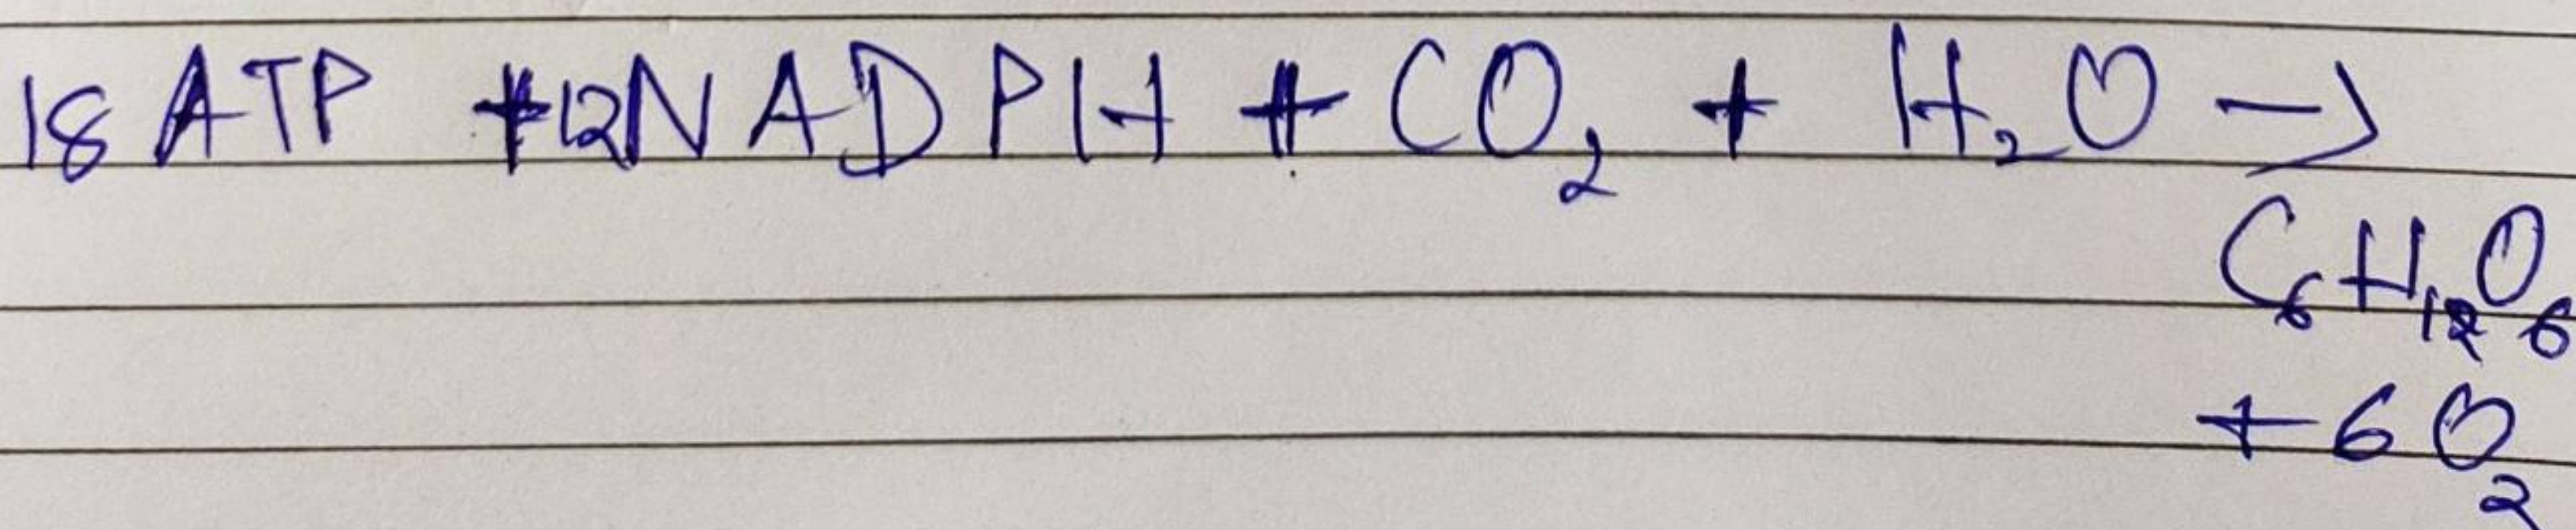 18 ATP + 12 NADPH + CO₂ + H₂O →
C₆H₁₂O₆
+ 6O₂